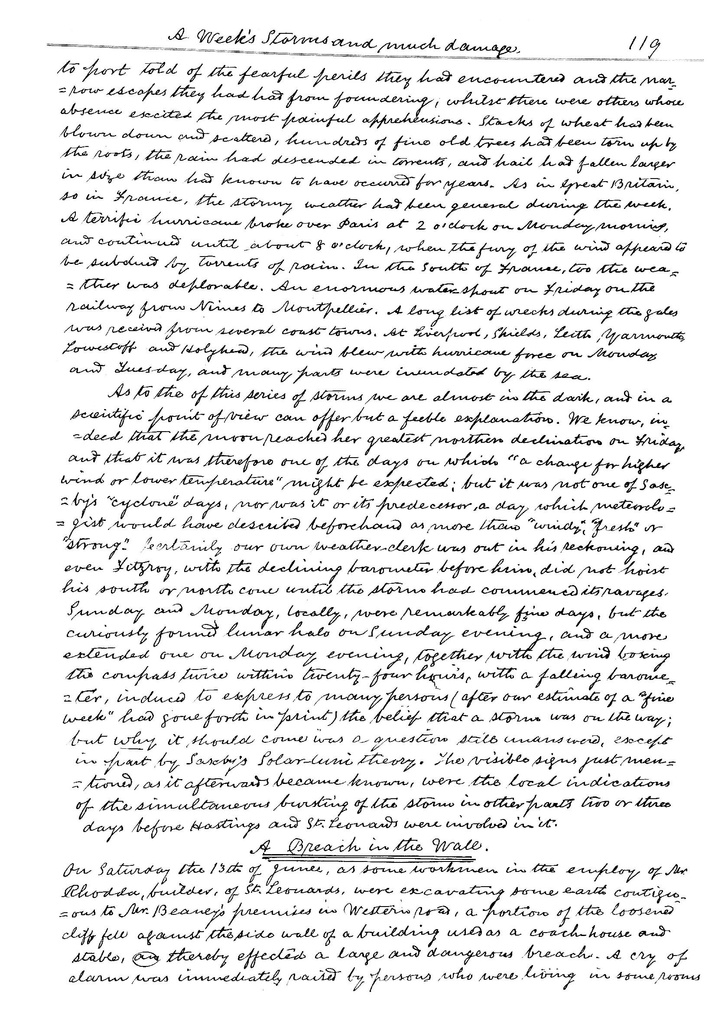 A Week's Storms and much damage. 119
to port told of the fearful perils they had encountered and the nar-
=row escapes they had had from foundering, whilst there were others whose
absence excited the most painful apprehensions. Stacks of wheat had been
blown down and scattered, hundreds of fine old trees had been torn up by
the roots, the rain had descended in torrents, and hail had fallen larger
in size than had known to have occurred for years. As in Great Britain,
so in France, the stormy weather had been general during the week.
A terrific hurricane broke over Paris at 2 o'clock on Monday morning,
and continued until about 8 o'clock, when the fury of the wind appeared to
be subdued by torrents of rain. In the South of France, too the wea-
=ther was deplorable. An enormous water-spout on Friday on the
railway from Nimes to Montpellier. A long list of wrecks during the gales
was received from several coast towns. At Liverpool, Shields, Leith, Yarmouth,
Lowestoff and Holyhead, the wind blew with hurricane force on Monday
and Tuesday, and many parts were inundated by the sea.
As to the of this series of storms we are almost in the dark, and in a
scientific point of view can offer but a feeble explanation. We know, in-
=deed that the moon reached her greatest northern declination on Friday,
and that it was therefore one of the days on which "a change for higher
wind or lower temperature" might be expected; but it was not one of Sax-
=by's "cyclone" days, nor was it or its predecessor, a day which meteorolo-
=gist would have described beforehand as more than "windy", "fresh" or
"strong." Certainly our own weather-clerk was out in his reckoning, and
even Fitzroy, with the declining barometer before him, did not hoist
his south or north cone until the storm had commenced its ravages.
Sunday and Monday, locally, were remarkably fine days, but the
curiously formed lunar halo on Sunday evening, and a more
extended one on Monday evening, together with the wind boxing
the compass twice within twenty-four hours, with a falling barome-
=ter, induced to express to many persons (after our estimate of a "fine
week" had gone forth in print) the belief that a storm was on the way;
but why it should come was a question still unanswered, except
in part by Saxby's Solar-luni theory. The visible signs just men-
=tioned, as it afterwards became known, were the local indications
of the simultaneous bursting of the storm in other parts two or three
days before Hastings and St. Leonards were involved in it.
A Breach in the Wall.
On Saturday the 13th of June, as some workmen in the employ of Mr.
Rhodda, builder, of St. Leonards, were excavating some earth contigu-
=ous to Mr. Beaney's premises in Western road, a portion of the loosened
cliff fell against the side wall of a building used as a coach-house and
stable, an thereby effected a large and dangerous breach. A cry of
alarm was immediately raised by persons who were living in some rooms